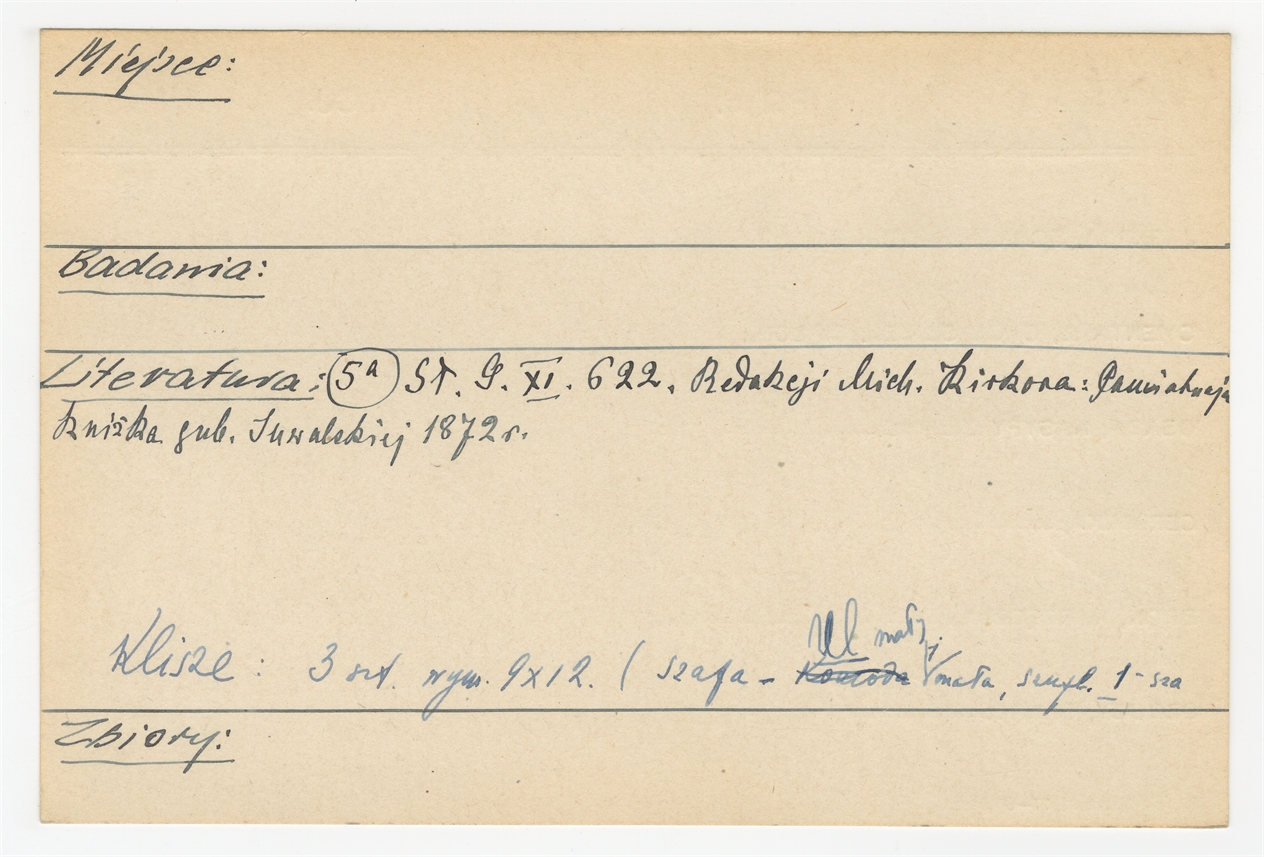 Miejsce:
Badania:
Literatura: 5a Sł. G. XI. 622. Redakcji Mich. Kirkora: Pamiatnaja
kniżka gub. Suwalskiej 1872 r.
mały
Klisze: 3 szt. wym. 9x12. ( szafa - Komoda mała, szufl. 1-sza
Zbiory: